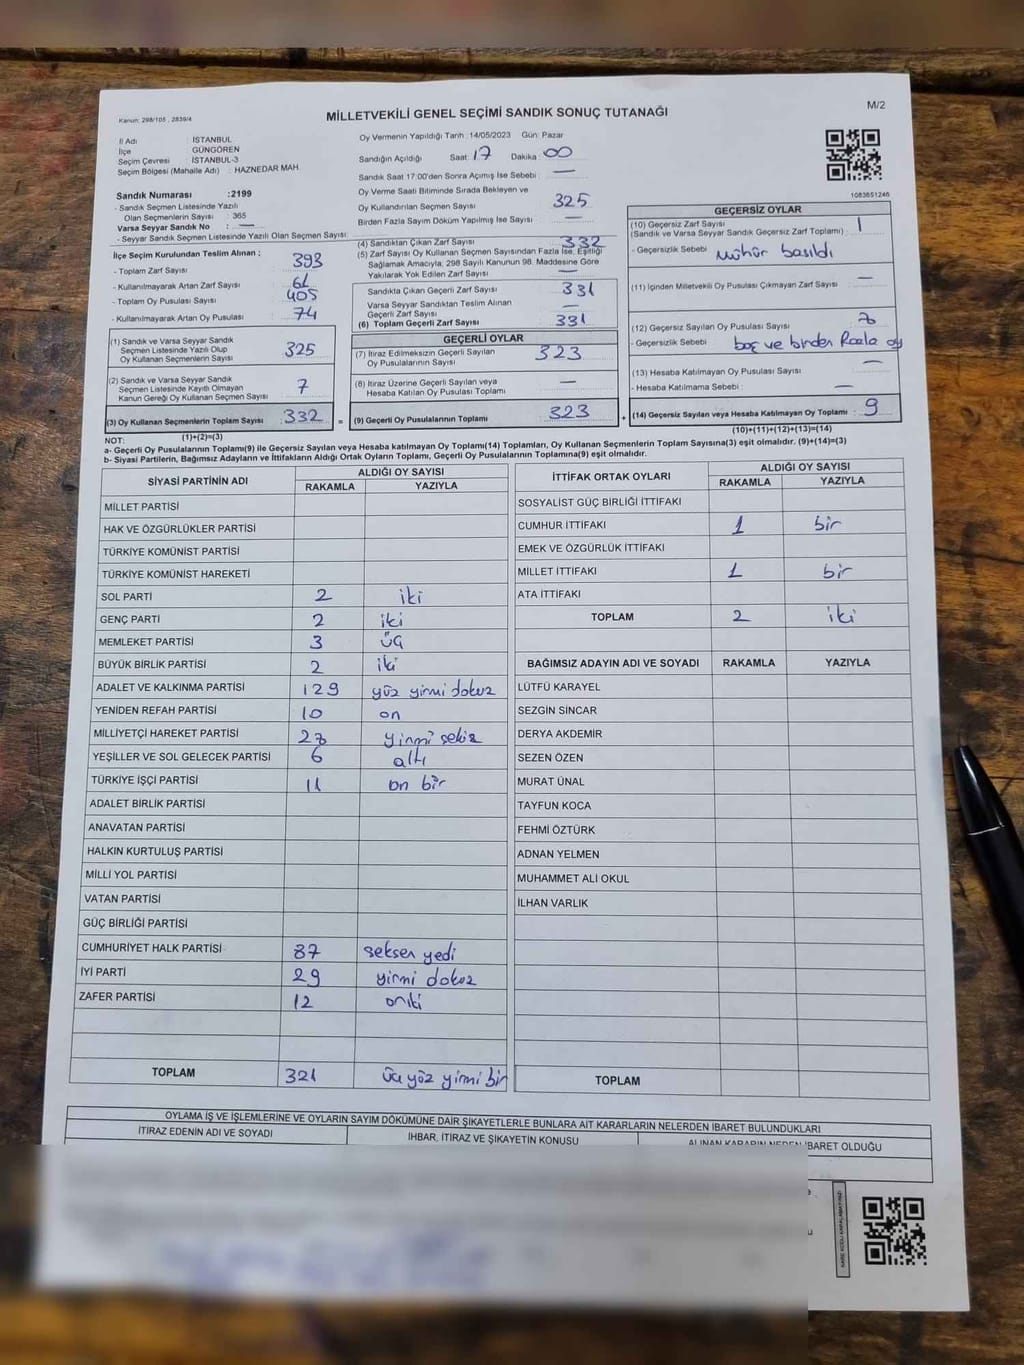 MİLLETVEKİLİ GENEL SEÇİMİ SANDIK SONUÇ TUTANAĞI
M/2
Kanun: 298/105 , 2839/4
İl Adı : İSTANBUL
İlçe : GÜNGÖREN
Seçim Çevresi : İSTANBUL-3
Seçim Bölgesi (Mahalle Adı) : HAZNEDAR MAH
Sandık Numarası :2199
- Sandık Seçmen Listesinde Yazılı
Olan Seçmenlerin Sayısı : 365
Varsa Seyyar Sandık No : —
- Seyyar Sandık Seçmen Listesinde Yazılı Olan Seçmen Sayısı:
Oy Vermenin Yapıldığı Tarih :14/05/2023 Gün: Pazar
Sandığın Açıldığı Saat: 17 Dakika: 00
Sandık Saat 17:00'den Sonra Açılmış İse Sebebi : —
Oy Verme Saati Bitiminde Sırada Bekleyen ve
Oy Kullandırılan Seçmen Sayısı : 325
Birden Fazla Sayım Döküm Yapılmış İse Sayısı : —
1083651246
İlçe Seçim Kurulundan Teslim Alınan ;
- Toplam Zarf Sayısı : 393
- Kullanılmayarak Artan Zarf Sayısı : 61
- Toplam Oy Pusulası Sayısı : 405
- Kullanılmayarak Artan Oy Pusulası : 74
(1) Sandık ve Varsa Seyyar Sandık
Seçmen Listesinde Yazılı Olup
Oy Kullanan Seçmenlerin Sayısı : 325
(2) Sandık ve Varsa Seyyar Sandık
Seçmen Listesinde Kayıtlı Olmayan
Kanun Gereği Oy Kullanan Seçmen Sayısı : 7
(3) Oy Kullanan Seçmenlerin Toplam Sayısı : 332
(1)+(2)=(3)
(4) Sandıktan Çıkan Zarf Sayısı : 332
(5) Zarf Sayısı Oy Kullanan Seçmen Sayısından Fazla İse, Eşitliği
Sağlamak Amacıyla; 298 Sayılı Kanunun 98. Maddesine Göre
Yakılarak Yok Edilen Zarf Sayısı : —
Sandıkta Çıkan Geçerli Zarf Sayısı : 331
Varsa Seyyar Sandıktan Teslim Alınan
Geçerli Zarf Sayısı : —
(6) Toplam Geçerli Zarf Sayısı : 331
GEÇERLİ OYLAR
(7) İtiraz Edilmeksizin Geçerli Sayılan
Oy Pusulalarının Sayısı : 323
(8) İtiraz Üzerine Geçerli Sayılan veya
Hesaba Katılan Oy Pusulası Toplamı : —
= (9) Geçerli Oy Pusulalarının Toplamı : 323
GEÇERSİZ OYLAR
(10) Geçersiz Zarf Sayısı : 1
(Sandık ve Varsa Seyyar Sandık Geçersiz Zarf Toplamı)
- Geçersizlik Sebebi : mühür basıldı
(11) İçinden Milletvekili Oy Pusulası Çıkmayan Zarf Sayısı : —
(12) Geçersiz Sayılan Oy Pusulası Sayısı :
- Geçersizlik Sebebi : boş ve birden fazla oy
(13) Hesaba Katılmayan Oy Pusulası Sayısı : —
- Hesaba Katılmama Sebebi : —
+ (14) Geçersiz Sayılan veya Hesaba Katılmayan Oy Toplamı : 9
(10)+(11)+(12)+(13)=(14)
NOT:
a- Geçerli Oy Pusulalarının Toplamı(9) ile Geçersiz Sayılan veya Hesaba katılmayan Oy Toplamı(14) Toplamları, Oy Kullanan Seçmenlerin Toplam Sayısına(3) eşit olmalıdır. (9)+(14)=(3)
b- Siyasi Partilerin, Bağımsız Adayların ve İttifakların Aldığı Ortak Oyların Toplamı, Geçerli Oy Pusulalarının Toplamına(9) eşit olmalıdır.
SİYASİ PARTİNİN ADI ALDIĞI OY SAYISI
RAKAMLA YAZIYLA
MİLLET PARTİSİ
HAK VE ÖZGÜRLÜKLER PARTİSİ
TÜRKİYE KOMÜNİST PARTİSİ
TÜRKİYE KOMÜNİST HAREKETİ
SOL PARTİ 2 iki
GENÇ PARTİ 2 iki
MEMLEKET PARTİSİ 3 üç
BÜYÜK BİRLİK PARTİSİ 2 iki
ADALET VE KALKINMA PARTİSİ 129 yüz yirmi dokuz
YENİDEN REFAH PARTİSİ 10 on
MİLLİYETÇİ HAREKET PARTİSİ 28 yirmi sekiz
YEŞİLLER VE SOL GELECEK PARTİSİ 6 altı
TÜRKİYE İŞÇİ PARTİSİ 11 on bir
ADALET BİRLİK PARTİSİ
ANAVATAN PARTİSİ
HALKIN KURTULUŞ PARTİSİ
MİLLİ YOL PARTİSİ
VATAN PARTİSİ
GÜÇ BİRLİĞİ PARTİSİ
CUMHURİYET HALK PARTİSİ 87 seksen yedi
İYİ PARTİ 29 yirmi dokuz
ZAFER PARTİSİ 12 oniki
TOPLAM 321 üç yüz yirmi bir
İTTİFAK ORTAK OYLARI ALDIĞI OY SAYISI
RAKAMLA YAZIYLA
SOSYALİST GÜÇ BİRLİĞİ İTTİFAKI
CUMHUR İTTİFAKI 1 bir
EMEK VE ÖZGÜRLÜK İTTİFAKI
MİLLET İTTİFAKI 1 bir
ATA İTTİFAKI
TOPLAM 2 iki
BAĞIMSIZ ADAYIN ADI VE SOYADI RAKAMLA YAZIYLA
LÜTFÜ KARAYEL
SEZGİN SİNCAR
DERYA AKDEMİR
SEZEN ÖZEN
MURAT ÜNAL
TAYFUN KOCA
FEHMİ ÖZTÜRK
ADNAN YELMEN
MUHAMMET ALİ OKUL
İLHAN VARLIK
TOPLAM
OYLAMA İŞ VE İŞLEMLERİNE VE OYLARIN SAYIM DÖKÜMÜNE DAİR ŞİKAYETLERLE BUNLARA AİT KARARLARIN NELERDEN İBARET BULUNDUKLARI
İTİRAZ EDENİN ADI VE SOYADI İHBAR, İTİRAZ VE ŞİKAYETİN KONUSU ALINAN KARARIN NEDEN İBARET OLDUĞU
KARE KODU KARALAMAYINIZ!